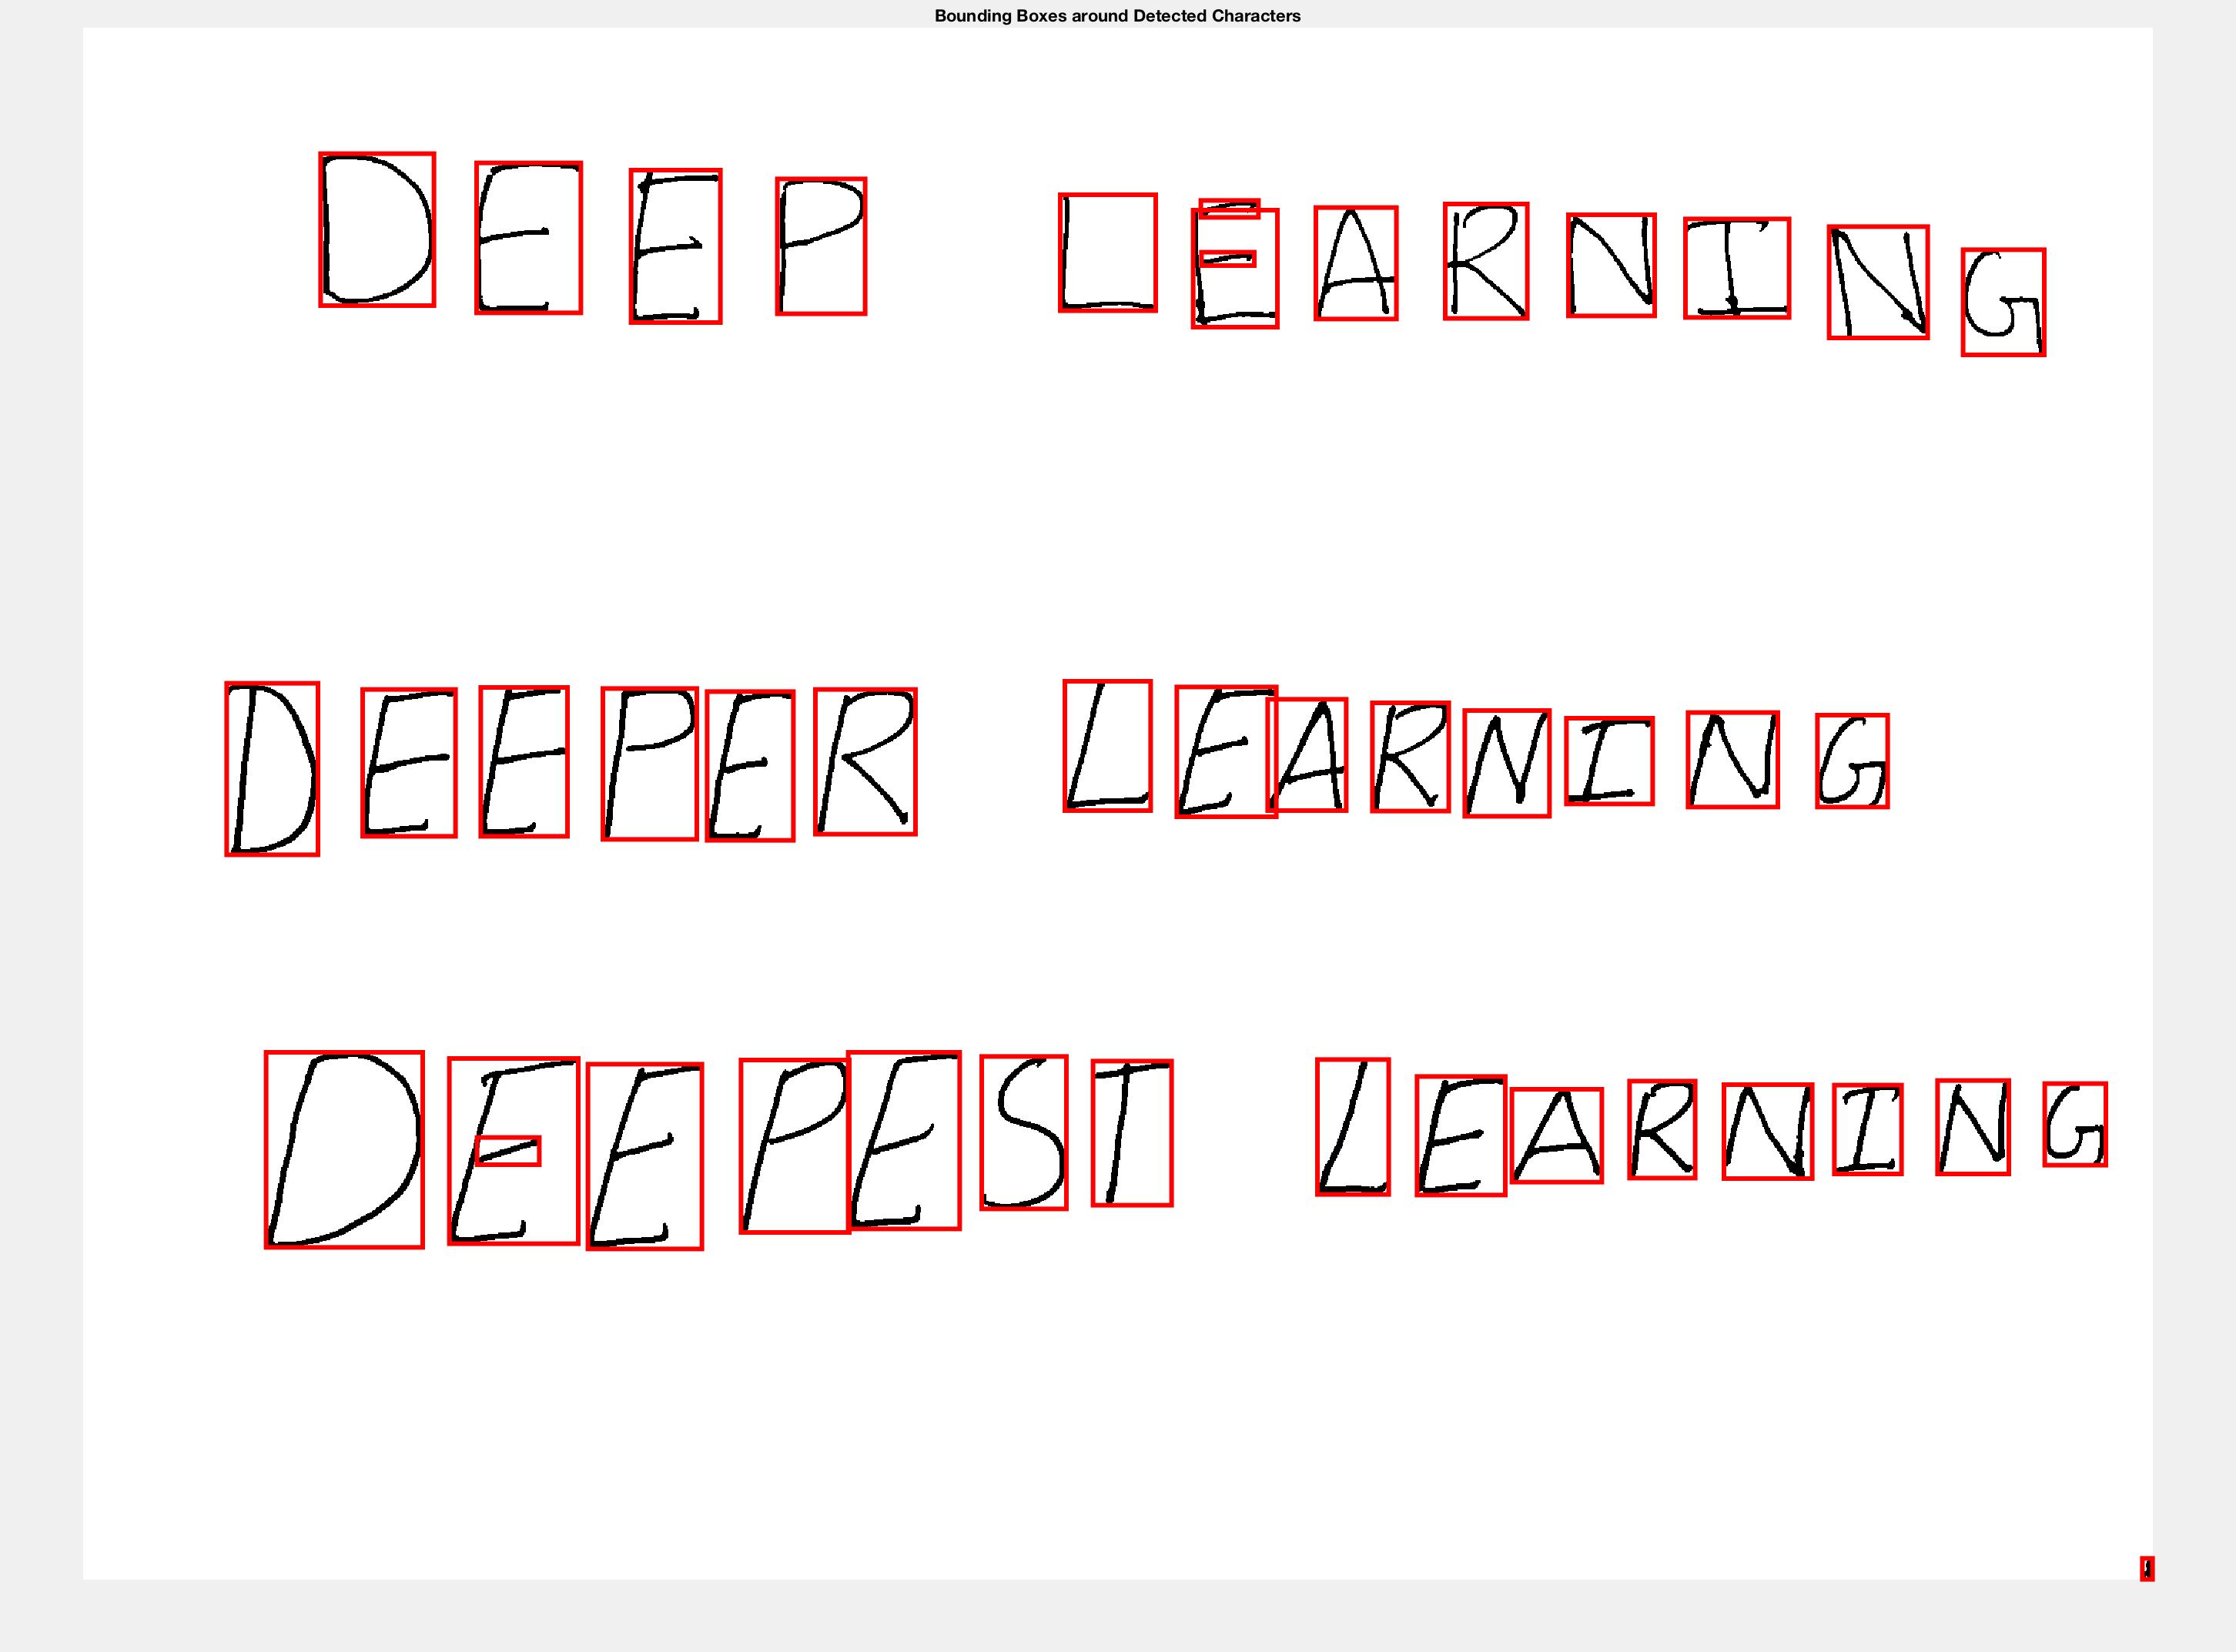 Bounding Boxes around Detected Characters
DEEP LEARNING
DEEPER LEARNING
DEEPEST LEARNING